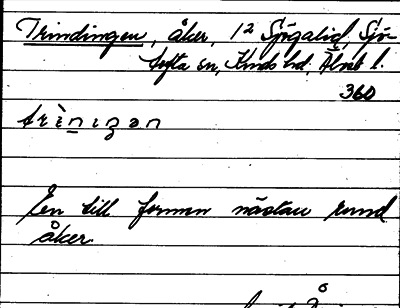 Trindingen, åker, 12 Sjögalid, Sjö-
tofta sn, Kinds hd, Älvsb l.
360
En till formen nästan rund
åker.